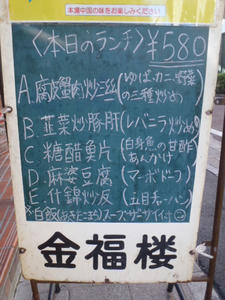 本場中国の味をお楽しみください
〈本日のランチ〉¥580
A.腐皮蟹肉炒三絲(ゆば、カニ、野菜の三種炒め)
B.韮菜炒豚肝(レバニラ炒め)
C.糖醋魚片(白身魚の甘酢あんかけ)
D.麻婆豆腐(マーボドーフ)
E.什錦炒反(五目チャーハン)
※白飯(あきたこまち)スープ、ザーサイ付
金福楼